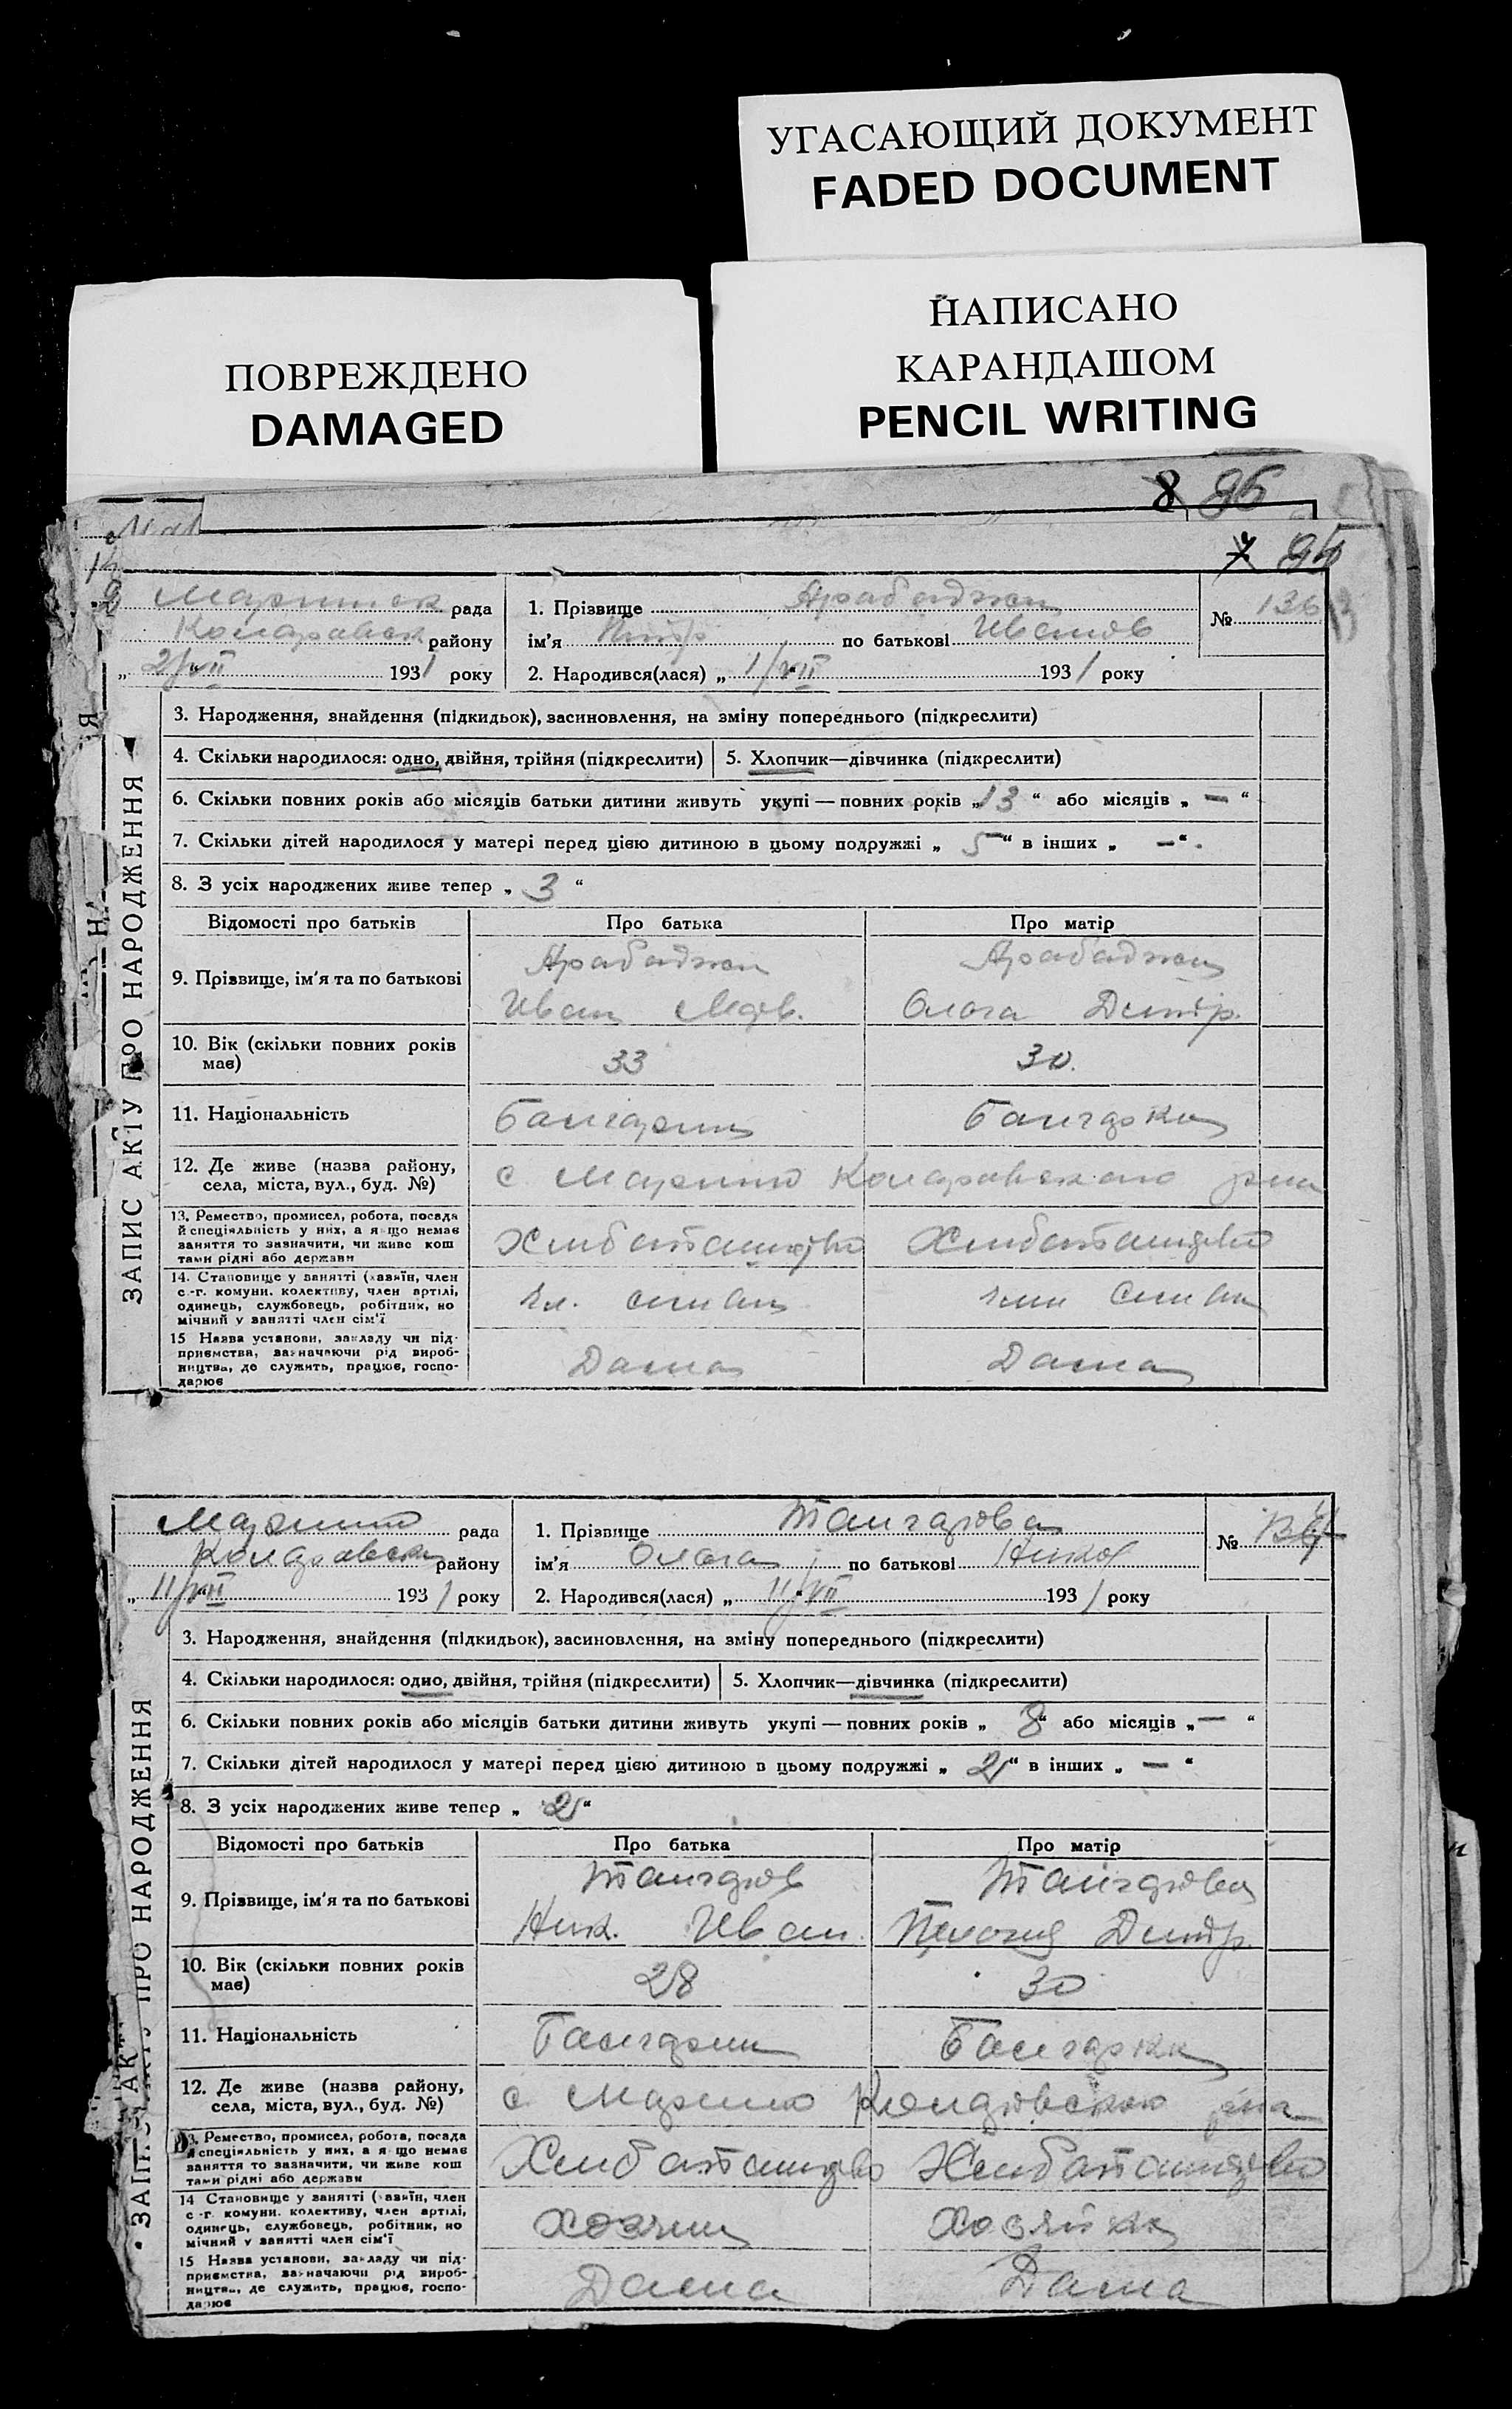 УГАСАЮЩИЙ ДОКУМЕНТ
FADED DOCUMENT
НАПИСАНО
КАРАНДАШОМ
PENCIL WRITING
ПОВРЕЖДЕНО
DAMAGED
8 86
7
рада
району
2/VII 1931 року
1. Прізвище Арабаджи
ім'я по батькові Иванов
№ 136
2. Народився(лася) „ 1/VII 1931 року
ЗАПИС АКТУ ПРО НАРОДЖЕННЯ
3. Народження, знайдення (підкидьок), засиновлення, на зміну попереднього (підкреслити)
4. Скільки народилося: одно, двійня, трійня (підкреслити) 5. Хлопчик—дівчинка (підкреслити)
6. Скільки повних років або місяців батьки дитини живуть укупі — повних років „13“ або місяців „ — “
7. Скільки дітей народилося у матері перед цією дитиною в цьому подружжі „ 5 “ в інших „ — “.
8. З усіх народжених живе тепер „ 3 “
Відомості про батьків Про батька Про матір
9. Прізвище, ім'я та по батькові Арабаджи Арабаджи
Иван Олга Дмитр.
10. Вік (скільки повних років має) 33 30
11. Національність Болгарин Болгарка
12. Де живе (назва району, села, міста, вул., буд. №) с Марино
13. Ремество, промисел, робота, посада й спеціяльність у них, а якщо немає заняття то зазначити, чи живе коштами рідні або держави Хлібопашество Хлібопашество
14. Становище у занятті (хазяїн, член с.-г. комуни, колективу, член артілі, одинець, службовець, робітник, помічний у занятті член сім'ї
15 Назва установи, закладу чи підприємства, зазначаючи рід виробництва, де служить, працює, господарює Дома Дома
Марино рада
району
11/VII 1931 року
1. Прізвище
ім'я Олга по батькові Никол
№
2. Народився(лася) „ 11/VII 1931 року
ЗАПИС АКТУ ПРО НАРОДЖЕННЯ
3. Народження, знайдення (підкидьок), засиновлення, на зміну попереднього (підкреслити)
4. Скільки народилося: одно, двійня, трійня (підкреслити) 5. Хлопчик—дівчинка (підкреслити)
6. Скільки повних років або місяців батьки дитини живуть укупі — повних років „ 8 “ або місяців „ — “
7. Скільки дітей народилося у матері перед цією дитиною в цьому подружжі „ 2 “ в інших „ — “
8. З усіх народжених живе тепер „ 2 “
Відомості про батьків Про батька Про матір
9. Прізвище, ім'я та по батькові
Ник. Иван. Дмитр.
10. Вік (скільки повних років має) 28 30
11. Національність Болгарин Болгарка
12. Де живе (назва району, села, міста, вул., буд. №) с Марино
13. Ремество, промисел, робота, посада й спеціяльність у них, а якщо немає заняття то зазначити, чи живе коштами рідні або держави Хлібопашество Хлібопашество
14 Становище у занятті (хазяїн, член с.-г. комуни, колективу, член артілі, одинець, службовець, робітник, помічний у занятті член сім'ї Хозяин Хозяйка
15 Назва установи, закладу чи підприємства, зазначаючи рід виробництва, де служить, працює, господарює Дома Дома